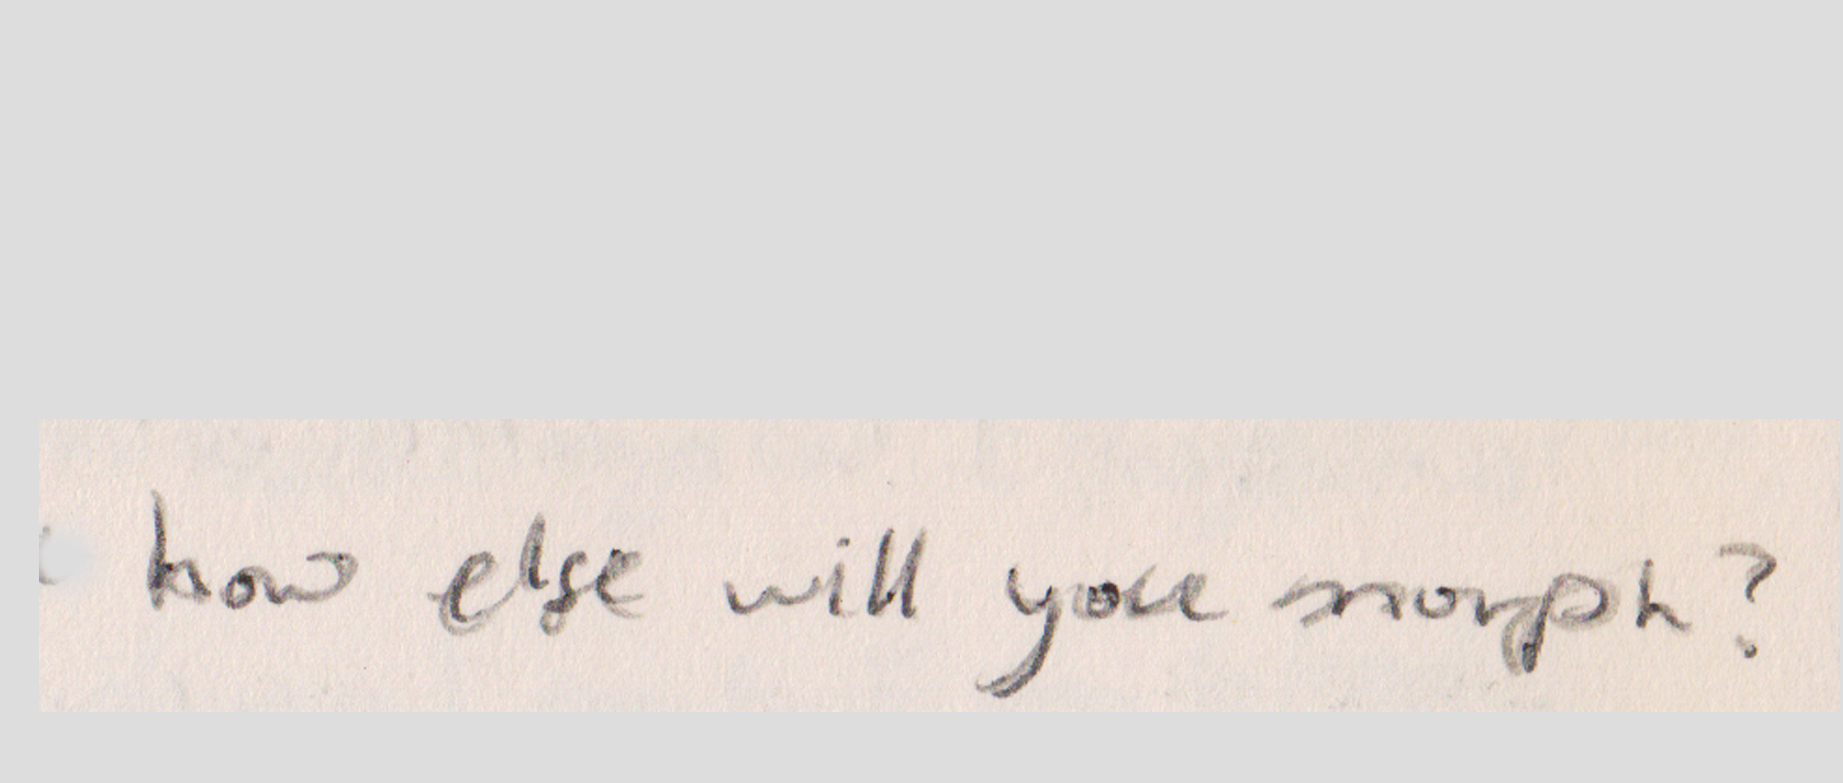 how else will you morph?